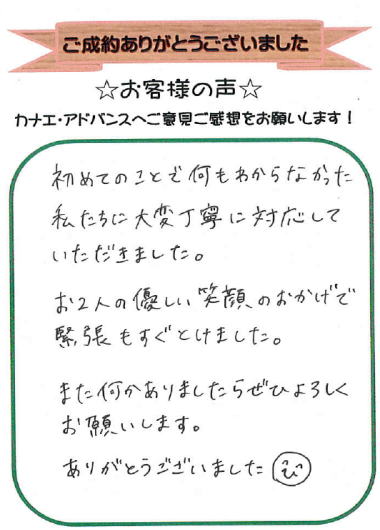 ご成約ありがとうございました
☆お客様の声☆
カナエ・アドバンスへご意見ご感想をお願いします！
初めてのことで何もわからなかった
私たちに大変丁寧に対応して
いただきました。
お2人の優しい笑顔のおかげで
緊張もすぐとけました。
また何かありましたらぜひよろしく
お願いします。
ありがとうございました